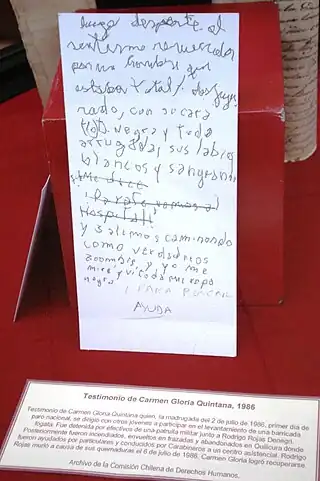 luego desperté al
por un hombre que
estaba total/ desfigu
rado, con su cara
toda negra y toda
arrugada, sus labios
blancos y sangrando
Me dice
¡Párate vamos al
Hospital!
y salimos caminando
como verdaderos
zoombis y yo me
miré y vi toda mi ropa
negra
AYUDA
Testimonio de Carmen Gloria Quintana, 1986
Testimonio de Carmen Gloria Quintana quien, la madrugada del 2 de julio de 1986, primer día de
paro nacional, se dirigió con otros jóvenes a participar en el levantamiento de una barricada
fogata. Fue detenida por efectivos de una patrulla militar junto a Rodrigo Rojas Denegri.
Posteriormente fueron incendiados, envueltos en frazadas y abandonados en Quilicura donde
fueron ayudados por particulares y conducidos por Carabineros a un centro asistencial. Rodrigo
Rojas murió a causa de sus quemaduras el 6 de julio de 1986, Carmen Gloria logró recuperarse.
Archivo de la Comisión Chilena de Derechos Humanos.